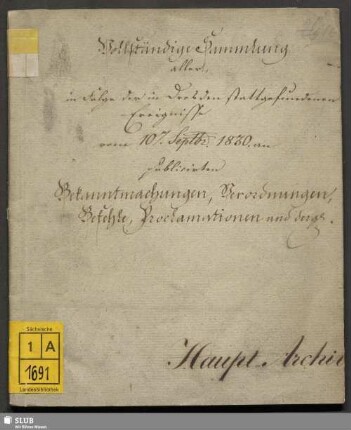 Vollständige Sammlung
aller,
in Folge der in Dresden stattgefundenen
Ereignisse
vom 10t. Septbr: 1830. an
publicirten
Bekanntmachungen, Verordnungen,
Befehle, Proclamationen und dergl.
Haupt Archiv
Sächsische
1 A
1691
Landesbibliothek
SLUB
Wir führen Wissen.